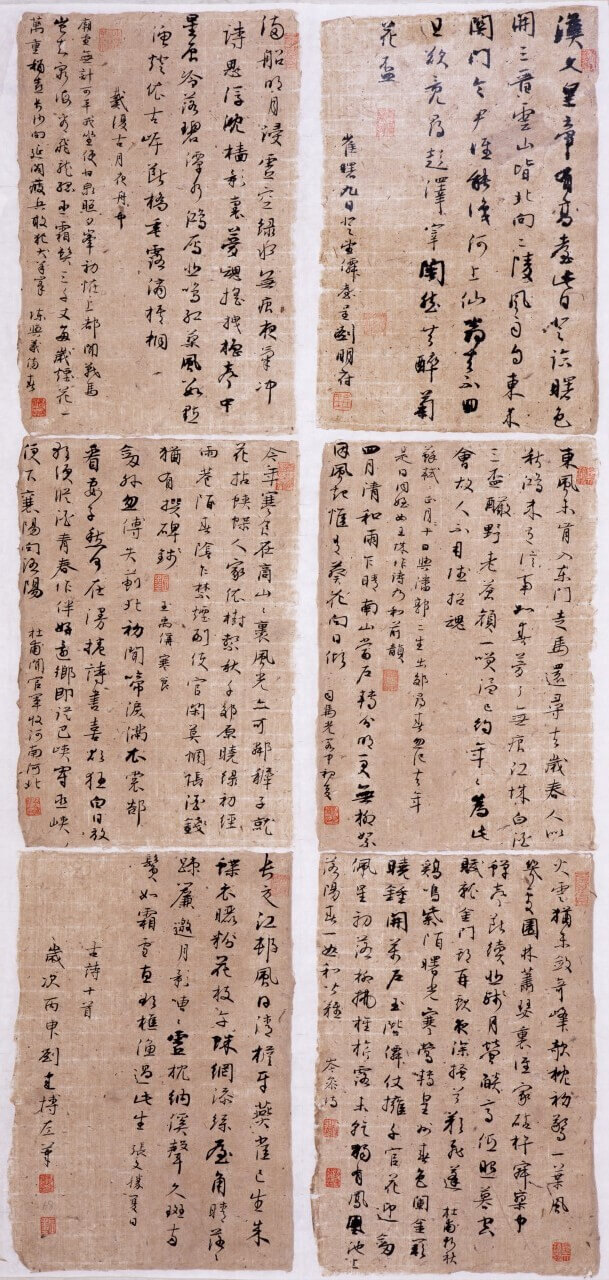 漢文皇帝有高臺此日登臨曙色
開三晉雲山皆北向二陵風雨自東來
關門令尹誰能識河上仙翁去不回
且欲近尋彭澤宰陶然共醉菊
花盃
崔曙九日登望僊臺呈劉明府
滿船明月浸虛空綠水無痕夜氣沖
詩思浮沉檣影裏夢魂搖拽櫓聲中
星辰冷落碧潭水鴻雁悲鳴紅蓼風數點
漁燈依古岸斷橋垂露滴梧桐
戴復古月夜舟中
廟堂無計可平戎坐使甘泉照夕烽初怪上都聞戰馬
豈知窮海看飛龍孤臣霜髮三千丈每歲煙花一
萬重稍喜長沙向延閣疲兵敢犯犬羊鋒 陳與義傷春
東風未肯入東門走馬還尋去歲春人似
秋鴻來有信事如春夢了無痕江城白酒
三盃釅野老蒼顏一笑溫已約年年為此
會故人不用賦招魂
蘇軾 正月二十日與潘郭二生出郊尋春忽記去年
是日同至女王城作詩乃和前韻
四月清和雨乍晴南山當戶轉分明更無柳絮
因風起惟有葵花向日傾 司馬光客中初夏
今年寒食在商山山裏風光亦可憐稚子就
花拈蛺蝶人家依樹繫秋千郊原曉綠初經
雨巷陌春陰乍禁煙副使官閑莫惆悵酒錢
猶有撰碑錢 王禹偁寒食
劍外忽傳收薊北初聞涕淚滿衣裳卻
看妻子愁何在漫捲詩書喜欲狂白日放
歌須縱酒青春作伴好還鄉即從巴峽穿巫峽
便下襄陽向洛陽 杜甫聞官軍收河南河北
火雲猶未斂奇峰欹枕初驚一葉風
幾處園林蕭瑟裏誰家砧杵寂寥中
蟬聲斷續悲殘月螢燄高低照暮空
賦就金門期再獻夜深搔首嘆飛蓬 杜甫新秋
雞鳴紫陌曙光寒鶯囀皇州春色闌金闕
曉鐘開萬戶玉階僊仗擁千官花迎劍
佩星初落柳拂旌旗露未乾獨有鳳凰池上
客陽春一曲和皆難 岑參詩
長夏江邨風日清簷牙燕雀已生成
蝶衣曬粉花枝午蛛網添絲屋角晴落落
疎簾邀月影嘈嘈虛枕納溪聲久斑兩
鬢如霜雪直欲樵漁過此生 張文潛夏日
古詩十首
歲次丙申劉建博左筆